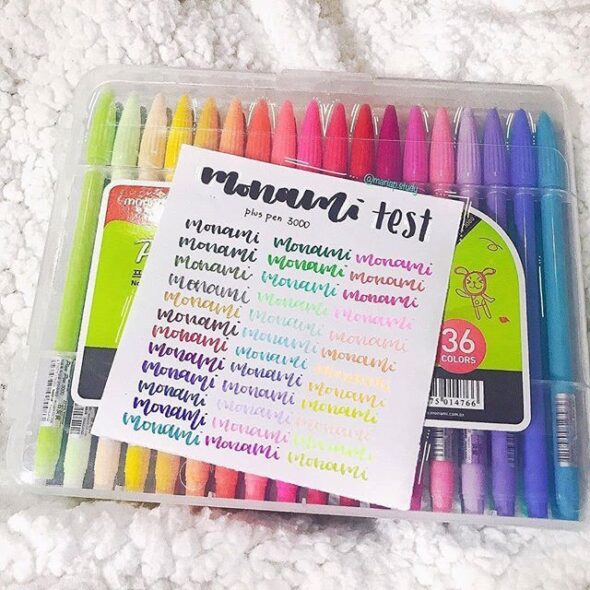 @mariap.study
monami test
plus pen 3000
monami monami monami
monami monami monami
monami monami monami
monami monami monami
monami monami monami
monami monami monami
monami monami monami
monami monami monami
monami monami monami
monami monami monami
monami monami monami
monami monami monami
3000
36
COLORS
75 014766